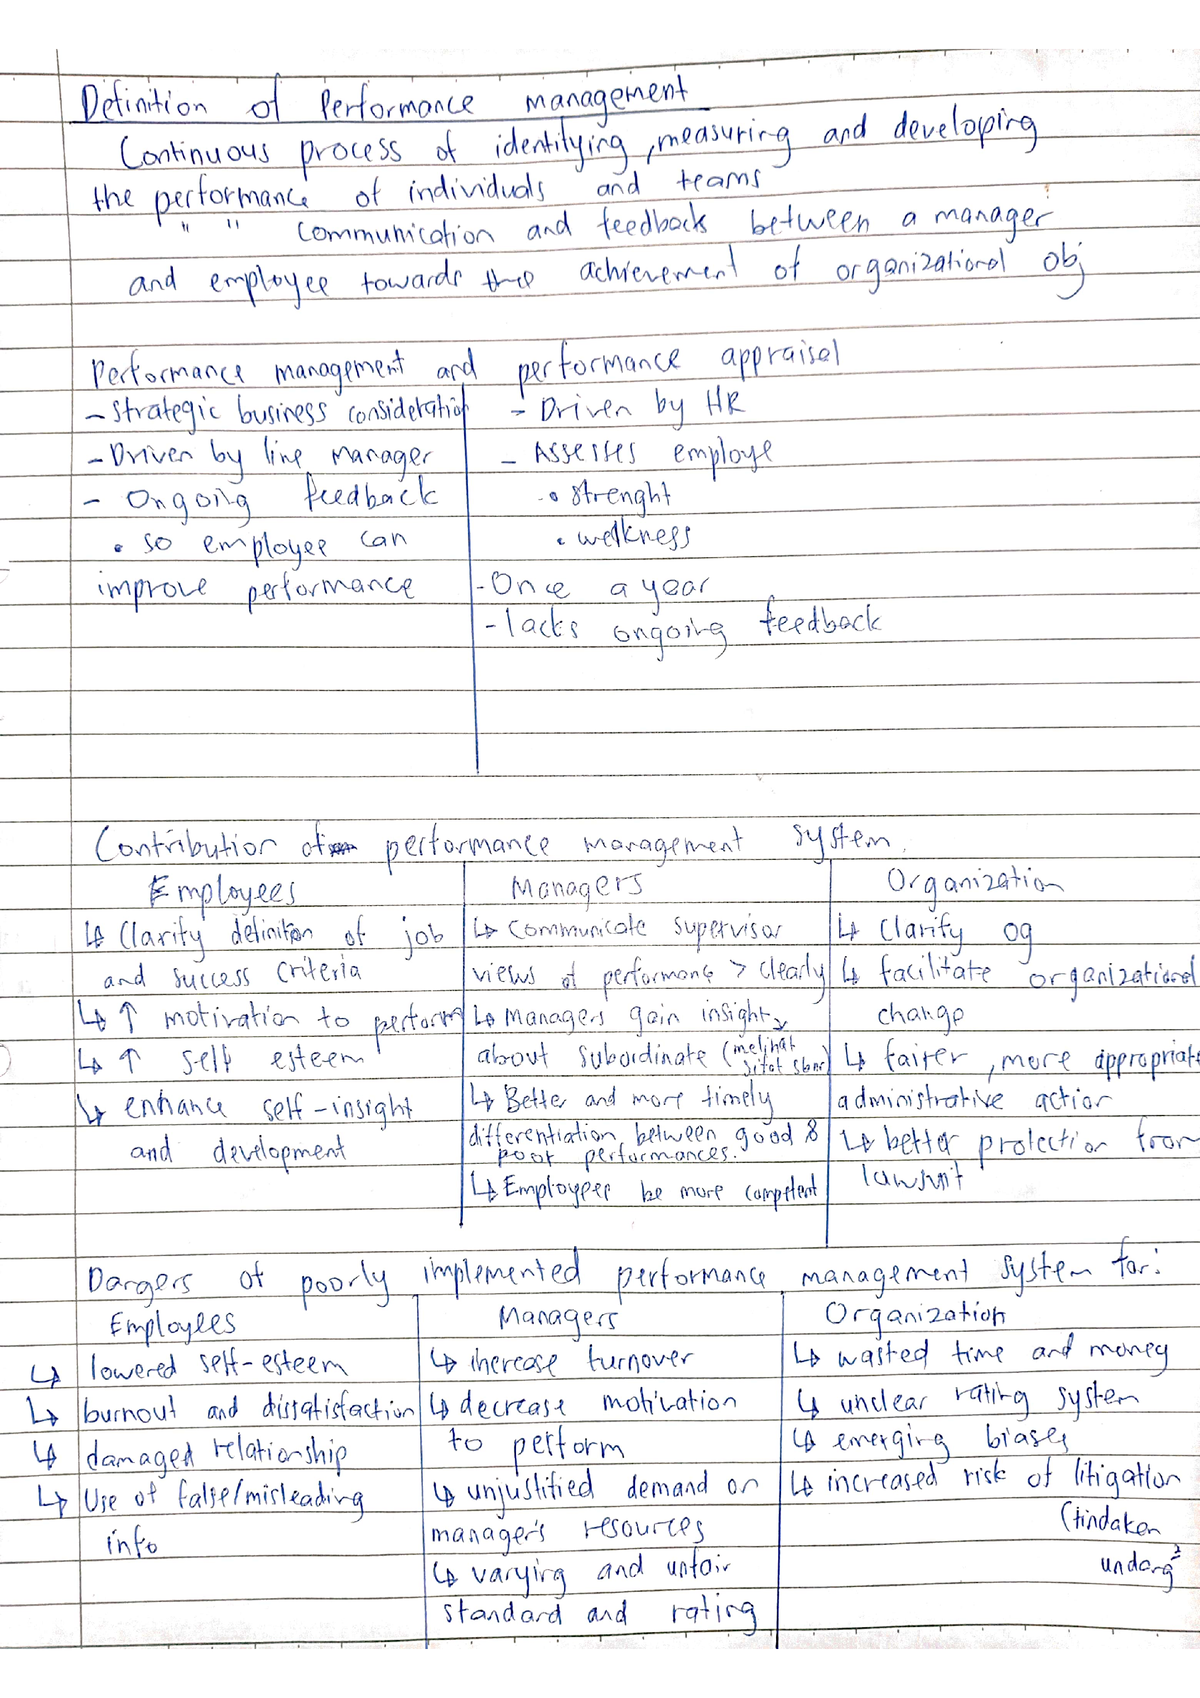 Definition of Performance management
Continuous process of identifying, measuring and developing
the performance of individuals and teams
" " communication and feedback between a manager
and employee towards the achievement of organizational obj
Performance management and performance appraisal
- Strategic business consideration
- Driven by line manager
- Ongoing feedback
• so employee can
improve performance
- Driven by HR
- Assesses employe
• strenght
• weakness
- Once a year
- lacks ongoing feedback
Contribution of performance management system.
Employees
↳ Clarify definition of job
and success criteria
↳ ↑ motivation to perform
↳ ↑ self esteem
↳ enhance self-insight
and development
Managers
↳ Communicate supervisor
views of performance > clearly
↳ Managers gain insight
about subordinate (melihat
sifat sbnr)
↳ Better and more timely
differentiation between good &
poor performances.
↳ Employees be more competent
Organization
↳ Clarify og
↳ facilitate organizational
change
↳ fairer, more appropriate
administrative action
↳ better protection from
lawsuit
Dangers of poorly implemented performance management system for:
Employees
↳ lowered self-esteem
↳ burnout and dissatisfaction
↳ damaged relationship
↳ Use of false/misleading
info
Managers
↳ increase turnover
↳ decrease motivation
to perform
↳ unjustified demand on
manager's resources
↳ varying and unfair
standard and rating
Organization
↳ wasted time and money
↳ unclear rating system
↳ emerging biases
↳ increased risk of litigation
(tindakan
undang²